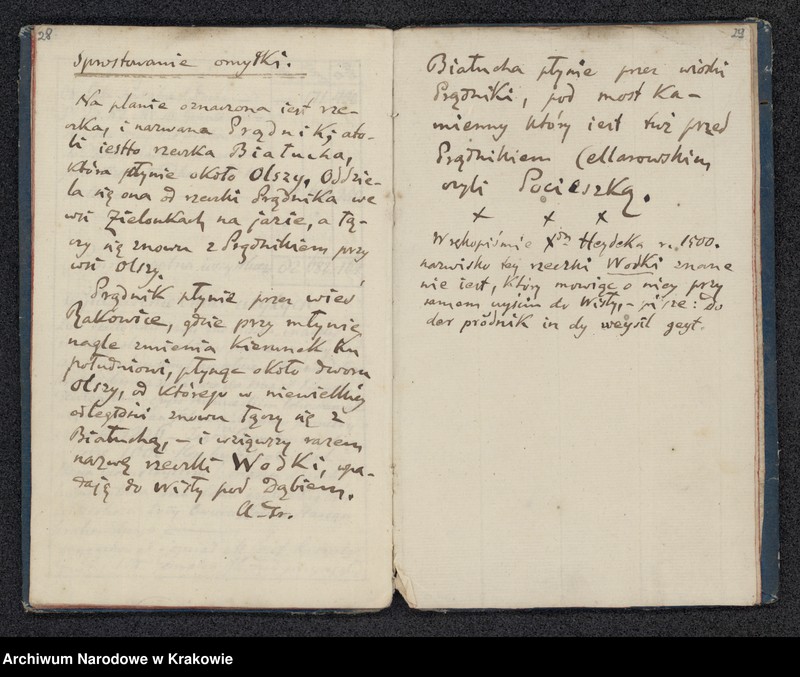 28
Sprostowanie omyłki.
Na planie oznaczona iest rze-
czka, i nazwana Prądnik, ato-
li iestto rzeczka Białucha,
która płynie około Olszy. Oddzie-
la się ona od rzeczki Prądnika we
wsi Zielonkach na jazie, a łą-
czy się znowu z Prądnikiem przy
wsi Olszy.
Prądnik płynie przez wieś
Rakowice, gdzie przy młynie
nagle zmienia kierunek ku
południowi, płynąc około dworu
Olszy, od którego w niewielkiej
odległości znowu łączy się z
Białuchą, – i wziąwszy razem
nazwę rzeczki Wodki, wpa-
dają do Wisły pod Dąbiem.
A. Gr.
29
Białucha płynie przez wioski
Prądniki, pod most ka-
mienny który iest tuż przed
Prądnikiem Cellarowskim
czyli Pocieszką.
+ + +
W rękopiśmie Xdza Heydeka r. 1500.
nazwisko tey rzeczki Wodki znane
nie iest, który mowiąc o niey przy
samem uyściu do Wisły, – pisze: Do
der prŏdnik in dy weysil geyt.
Archiwum Narodowe w Krakowie